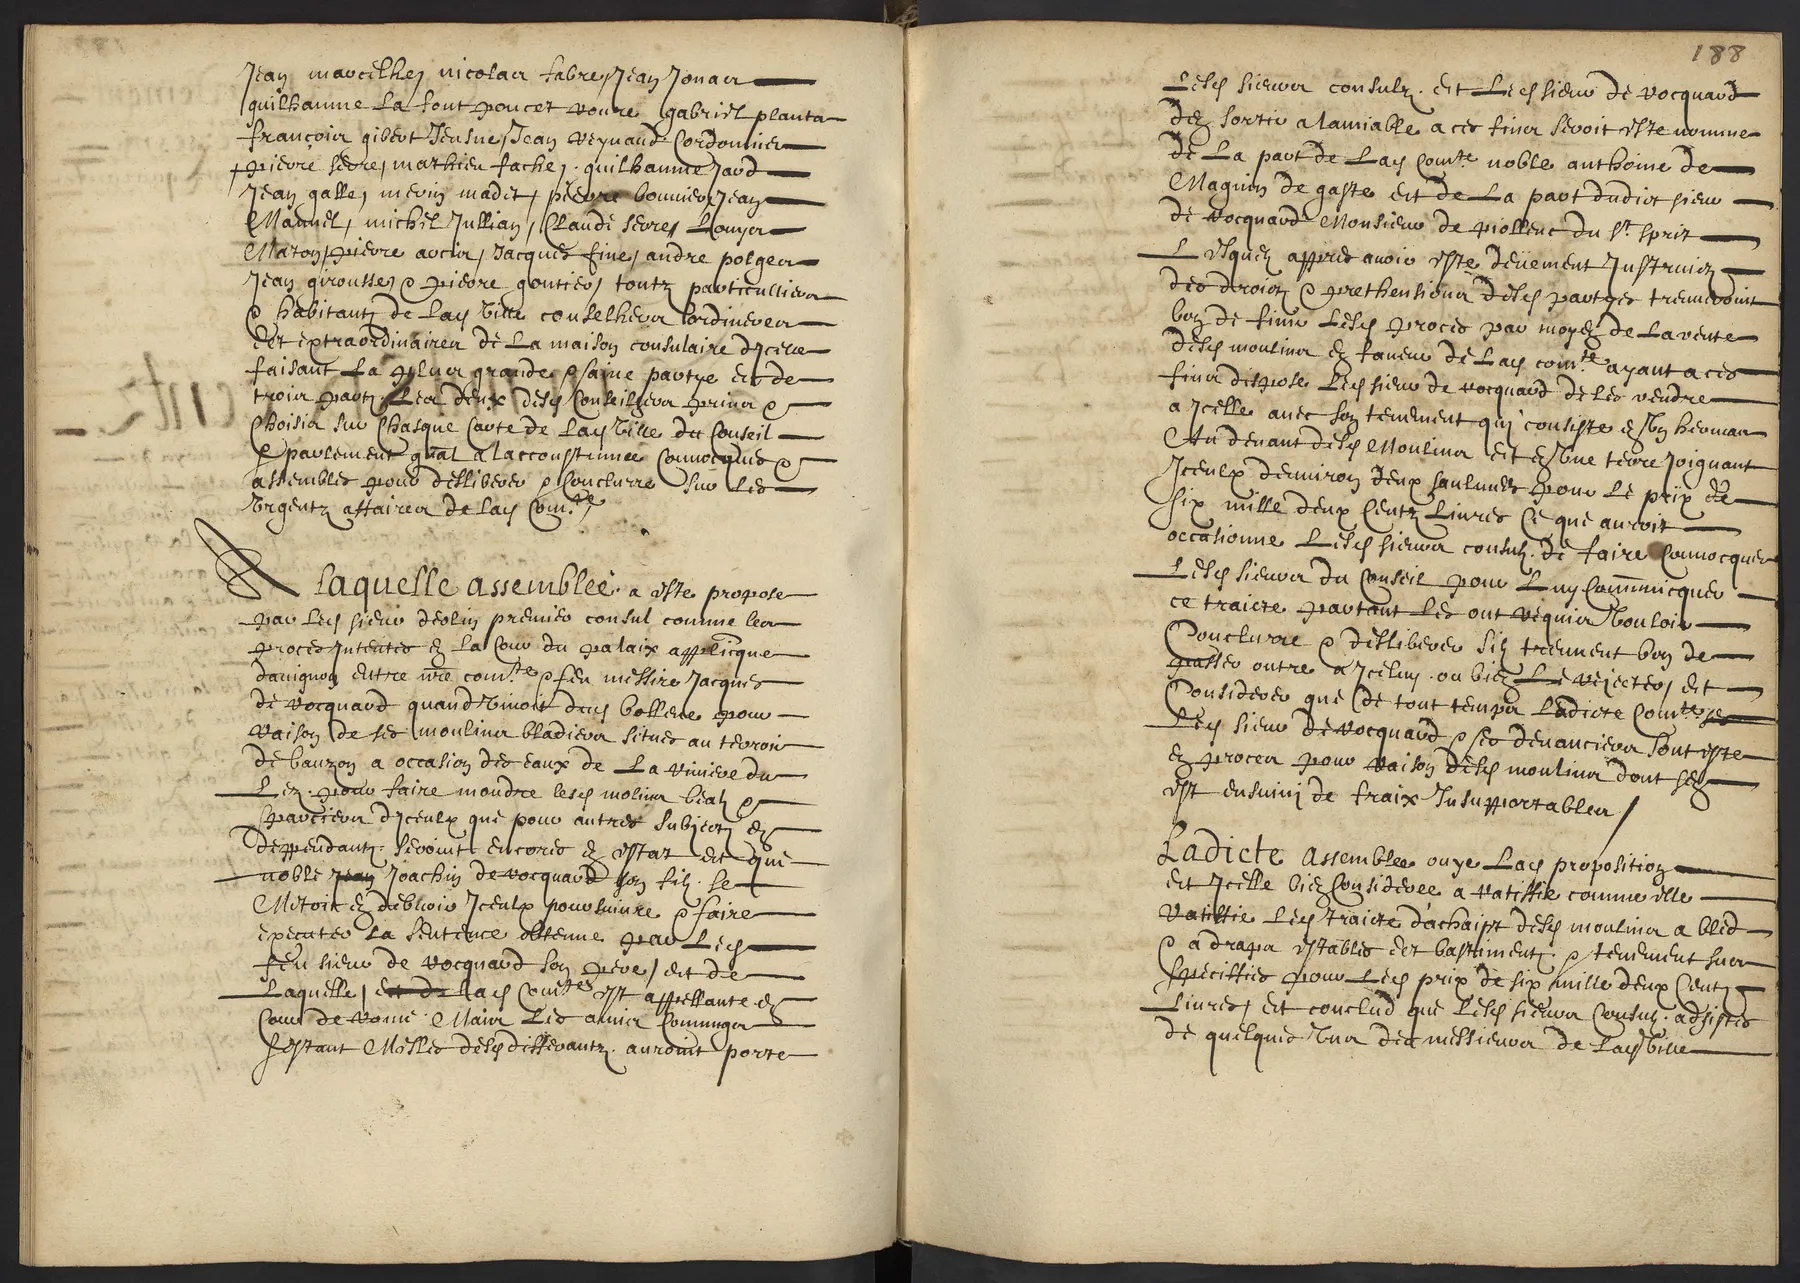 Jean marcelhez nicolas fabre, Jean Jonas
guilhaume la font poncet roure gabriel planta
françois gibert Jeusne, Jean reynaud Cordonnier
pierre serre, mathieu fache, guilhaume Jard
Jean galle, merin madit, pierre bonnier, Jean
Manuel, michel Jullian, Claude serre, Louyer
Maton, pierre arcis, Jacques fine, andre polge
Jean girousse, & pierre gontier, toutz particulliers
& habitantz de lad ville conselhers ordineres
et extraordinaires de la maison consulaire d'icelle
faisant la plus grande & saine partye et de
trois partz les deux desd Conseilhers prins &
Choisis sur Chasque Carte de lad ville du Conseil
& parlement gnal a l'accoustumee Convocques &
assembles pour desliberer & Conclurre sur les
Urgentz affaires de lad Com.te
A laquelle assemblee a este propose
par led sieur deolin premier consul comme les
proces intentes en la Cour du palaix applicque
davignon entre nre com.te & feu messire Jacques
de rocquard quand vivoit dud bollene pour
raison de ses moulins bladiers situes au terroir
de bauzon a occasion des eaux de la riviere du
Lez pour faire moudre lesd molins bealz &
parciers d'iceulx que pour autres subjectz en
deppendantz seroint encores en estat et que
noble Jean Joachin de rocquard son filz se
Metoit en debvoir iceulx poursuivre & faire
executer la sentence obtenue par led
feu sieur de rocquard son pere, et de
laquelle, et de lad Com.te est appellante en
Cour de rome Mais les amis Commungs
s'estant Mesles desd differantz auroint porte
188
Lesd sieurs consulz et led sieur de rocquard
den sortir a lamiable a ces fins seroit este nomme
de la part de lad Com.te noble anthoine de
Magnin de gaste et de la part dudict sieur
de rocquard Monsieur de piollenc du St Sprit
Lesquelz appres avoir este deuement Instruictz
des droictz & prethensions desd partyes treuveroint
bon de finir lesd proces par moyen de la vente
desd moulins en faveur de lad com.te ayant a ces
fins dispose led sieur de rocquard de les vendre
a Icelle avec son tenement qui consiste en Un herman
Au devant desd Moulins et en Une terre Joignant
Iceulx denviron deux saulmees pour le prix de
six mille deux Centz Livres Ce que auroit
occasionne lesd sieurs consulz de faire Convocquer
Lesd sieurs du Conseil pour luy Communicquer
ce traicte partant les ont requis Vouloir
Conclurre & desliberer silz treuvent bon de
passer outre a Iceluy ou bien le rejecter, et
Considerer que de tout temps ladicte Com.te
Led sieur de rocquard & ses devanciers sont este
en proces pour raison desd moulins dont sen
est ensuivj de fraix Insupportables /
Ladicte assemblee ouye lad proposition
et Icelle bien Consideree a ratiffie comme elle
ratiffie led traicte d'achaipt desd moulins a bled
& a drapz estables et bastimentz & tenement sus
speciffies pour led prix de six mille deux Centz
Livres, et conclud que lesd sieurs Consulz adsistes
de quelques Uns des messieurs de lad ville